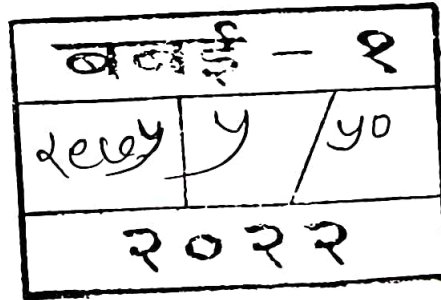 बबई - १
२९७५ ५ / ५०
२०२२